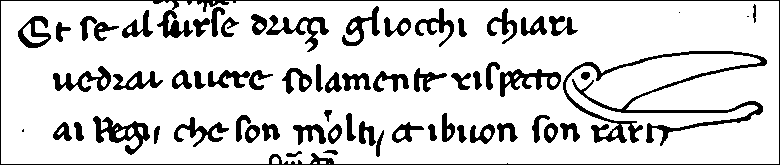 Et se al surse driçci gliocchi chiari
uedrai auere solamente rispecto
ai Regi, che son molti, et ibuon son rari